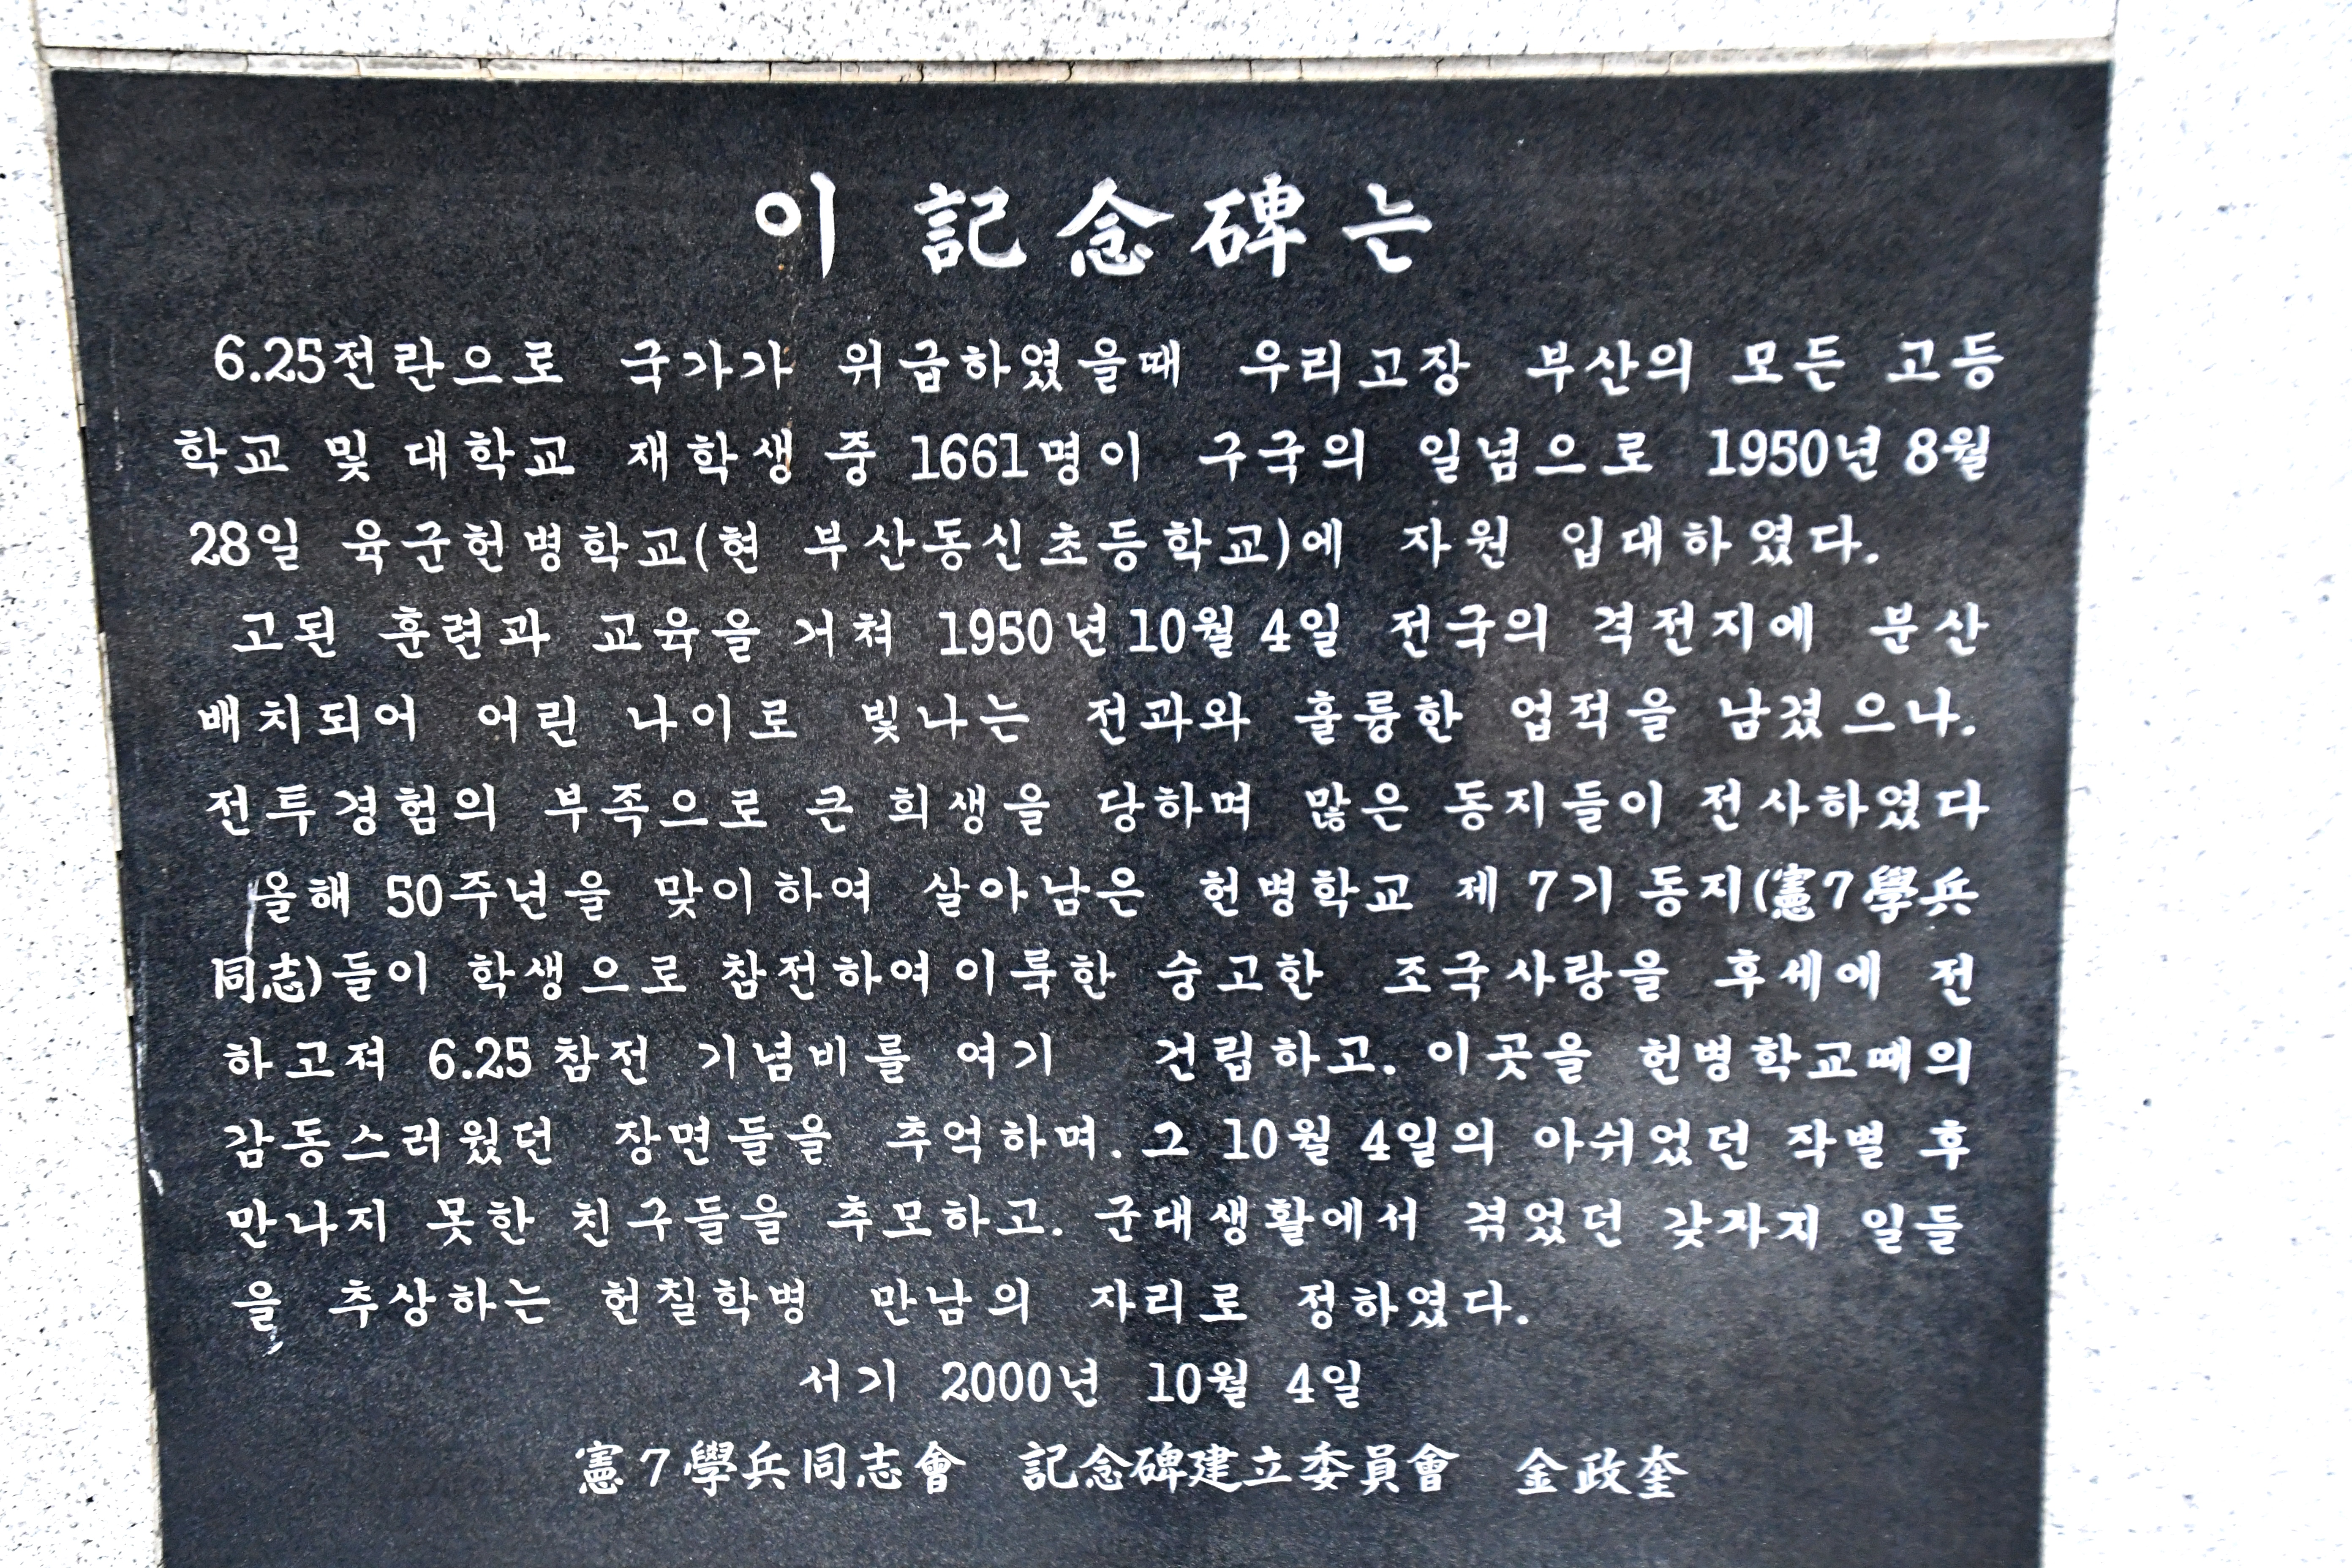 이 記念碑는
6.25전란으로 국가가 위급하였을때 우리고장 부산의 모든 고등
학교 및 대학교 재학생 중 1661명이 구국의 일념으로 1950년 8월
28일 육군헌병학교(현 부산동신초등학교)에 자원 입대하였다.
고된 훈련과 교육을 거쳐 1950년 10월 4일 전국의 격전지에 분산
배치되어 어린 나이로 빛나는 전과와 훌륭한 업적을 남겼으나.
전투경험의 부족으로 큰 희생을 당하며 많은 동지들이 전사하였다
올해 50주년을 맞이하여 살아남은 헌병학교 제7기 동지(憲7學兵
同志)들이 학생으로 참전하여 이룩한 숭고한 조국사랑을 후세에 전
하고져 6.25 참전 기념비를 여기 건립하고. 이곳을 헌병학교때의
감동스러웠던 장면들을 추억하며. 그 10월 4일의 아쉬었던 작별 후
만나지 못한 친구들을 추모하고. 군대생활에서 겪었던 갖자지 일들
을 추상하는 헌칠학병 만남의 자리로 정하였다.
서기 2000년 10월 4일
憲7學兵同志會 記念碑建立委員會 金政奎